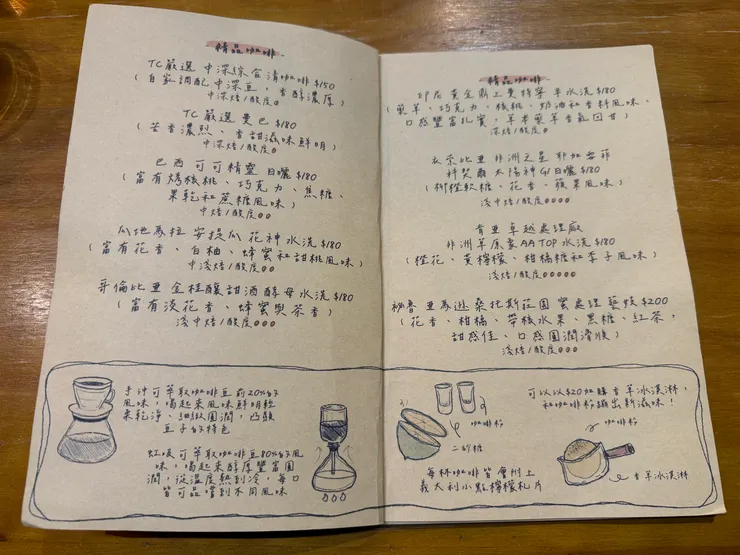 精品咖啡
TC嚴選 中深綜合清咖啡 $150
(自家調配中深豆,香醇濃厚)
中深焙/酸度●
TC嚴選 曼巴 $180
(苦香濃烈、香甜滋味鮮明)
中深焙/酸度●
巴西 可可精靈 日曬 $180
(富有烤核桃、巧克力、焦糖、
果乾和蔗糖風味)
中焙/酸度●●
瓜地馬拉 安提瓜 花神 水洗 $180
(富有花香、白柚、蜂蜜和甜桃風味)
中淺焙/酸度●●●
哥倫比亞 金桂釀甜酒酵母水洗 $180
(富有淡花香、蜂蜜與茶香)
淺中焙/酸度●●●
手沖可萃取咖啡豆前20%的
風味,喝起來風味鮮明輕
柔乾淨、細緻圓潤,凸顯
豆子的特色
虹吸可萃取咖啡豆80%的風
味,喝起來醇厚豐富圓
潤,從溫度熱到冷,每口
皆可品嚐到不同風味
精品咖啡
印尼 黃金爵士曼特寧 半水洗 $180
(藥草、巧克力、核桃、奶油和香料風味、
口感豐富扎實,草本藥草香氣回甘)
深焙/酸度●
衣索比亞 非洲之星 耶加雪菲
科契爾 太陽神 G1 日曬 $180
(柳橙軟糖、花香、蘋果風味)
淺中焙/酸度●●●●
肯亞 卓越處理廠
非洲草原豪AA TOP 水洗 $180
(橙花、黃檸檬、柑橘糖和李子風味)
淺焙/酸度●●●●●
祕魯 亞馬遜 桑托斯莊園 蜜處理 藝妓 $200
(花香、柑橘、帶核水果、黑糖、紅茶,
甜感佳、口感圓潤滑順)
淺焙/酸度●●●●
咖啡粉
二砂糖
每杯咖啡皆會附上
義大利小點檸檬札片
可以以$20加購香草冰淇淋,
和咖啡粉擦出新滋味!
咖啡粉
香草冰淇淋